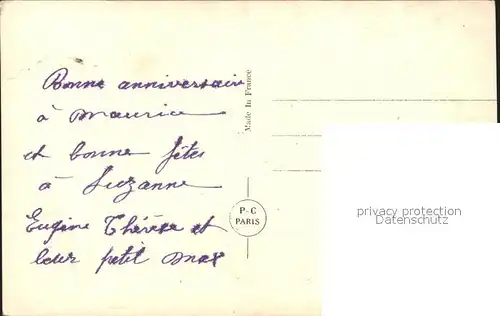 Bonne anniversaire
à Maurice
et bonne fêtes
à Suzanne
Eugène Thérèse et
leur petit Max
Made in France
P-C
PARIS
privacy protection
Datenschutz